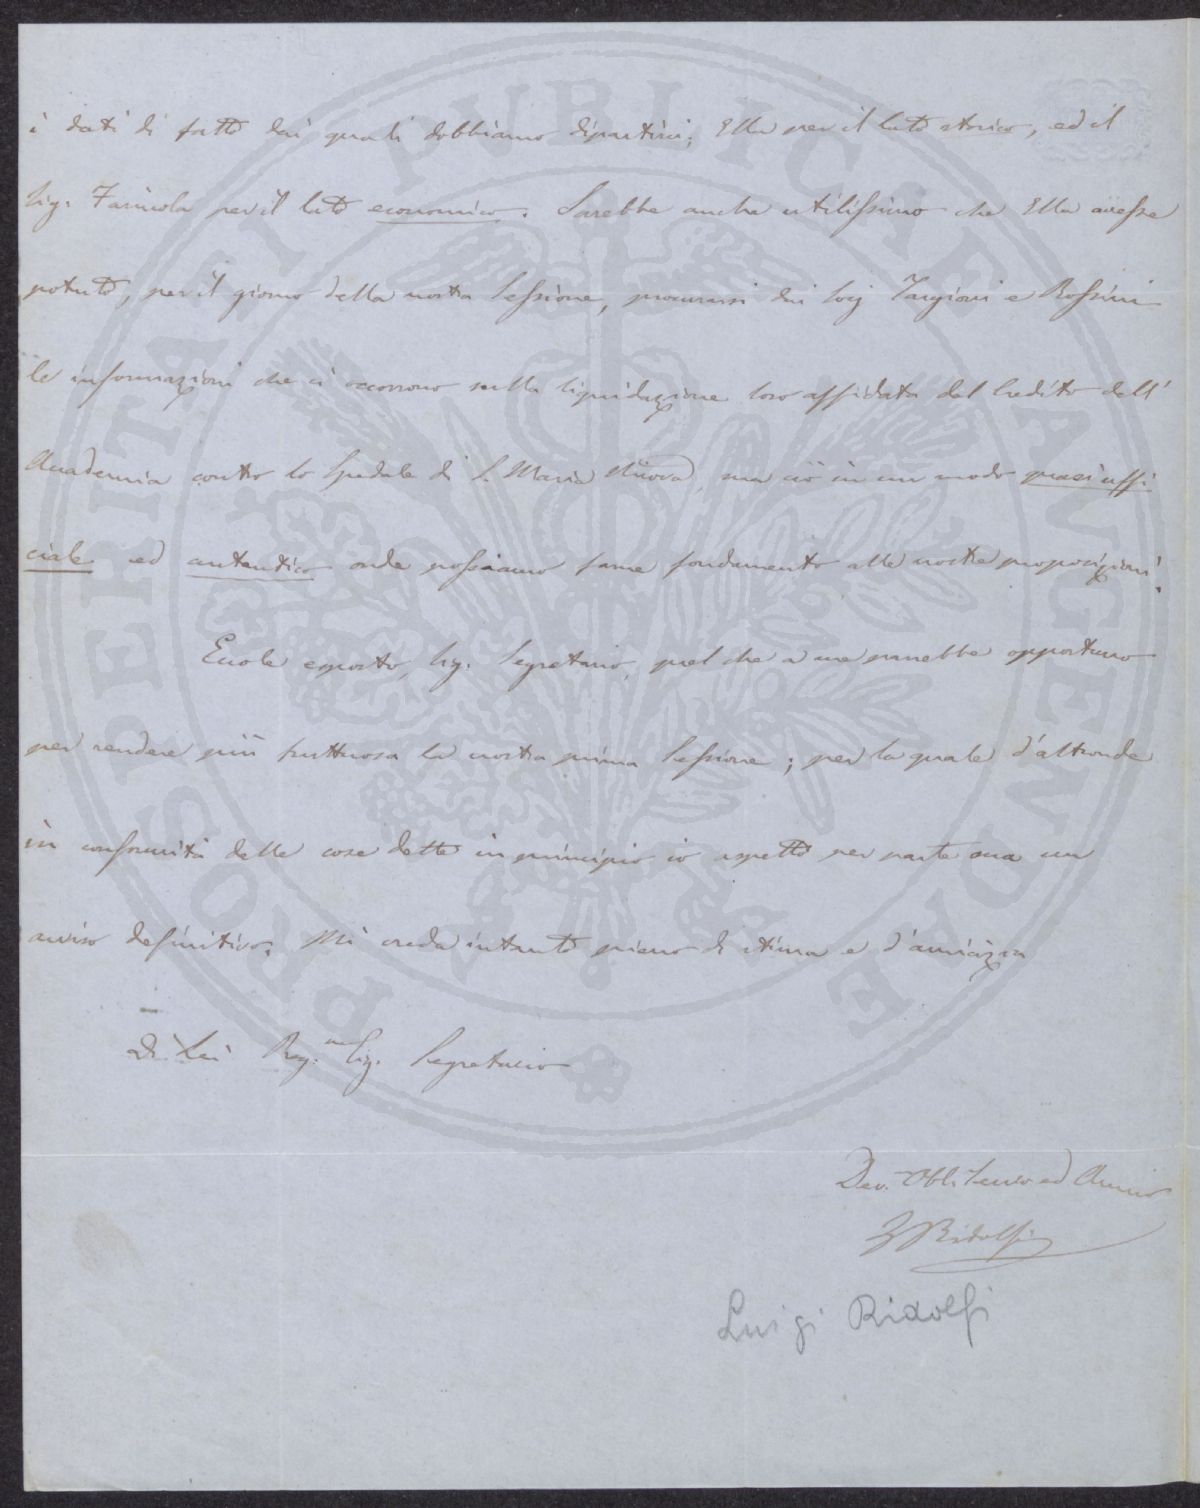 i dati di fatto dai quali dobbiamo dipartirci; Ella per il lato storico, ed il
Sig. Farinola per il lato economico. Sarebbe anche utilissimo che Ella avesse
potuto, per il giorno della nostra Sessione, procurarsi dai Socj Targioni e Rossini
le informazioni che ci occorrono sulla liquidazione loro affidata del Credito dell'
Accademia contro lo Spedale di S. Maria Nuova, ma ciò in un modo quasi uffi
ciale ed autentico onde possiamo farne fondamento alle nostre proposizioni.
Eccole esposto, Sig. Segretario, quel che a me parrebbe opportuno
per rendere più fruttuosa la nostra prima Sessione; per la quale d'altronde
in conformità delle cose dette in principio io aspetto per parte sua un
avviso definitivo. Mi creda intanto pieno di stima e d'amicizia
Di Lei Preg.mo Sig. Segretario
Dev. Obb. Servo ed Amico
L Ridolfi
Luigi Ridolfi
PROSPERITATI PVBLICAE AVGENDAE